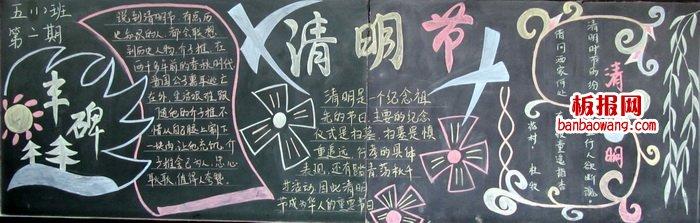 五(1)班
第二期
丰碑
说到清明节,有点历
史知识的人,都会联想
到历史人物介子推。在
两千多年前的春秋时代
晋国公子重耳逃亡
在外,生活艰难,跟
随他的介子推不
惜从自己腿上割下
一块肉让他充饥,介
子推舍己为人,忠心
耿耿,值得人夸赞。
清明节
清明是一个纪念祖
先的节日,主要的纪念
仪式是扫墓,扫墓是慎
重追远、行孝的具体
表现,还有踏青荡秋千
等活动,因此清明
节成为华人的重要节日
清明
清明时节雨纷纷
路上行人欲断魂
借问酒家何处有
牧童遥指杏
花村
杜牧
板报网
banbaowang.com